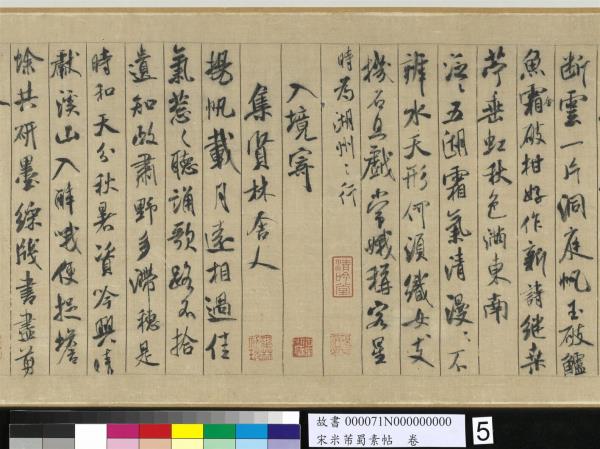 断雲一片洞庭帆玉破鱸
魚霜破柑好作新詩継桒
苧垂虹秋色滿東南
泛〻五湖霜氣清漫〻不
辨水天形何須織女支
機石且戲常娥稱客星
時為湖州之行
入境寄
集賢林舍人
揚帆載月遠相過佳
氣葱〻聽誦歌路不拾
遺知政肅野多滯穗是
時和天分秋暑資吟興晴
獻溪山入醉哦便捉蟾
蜍共研墨綵牋書盡剪
清吟堂
故書 000071N000000000
宋米芾蜀素帖 卷
5